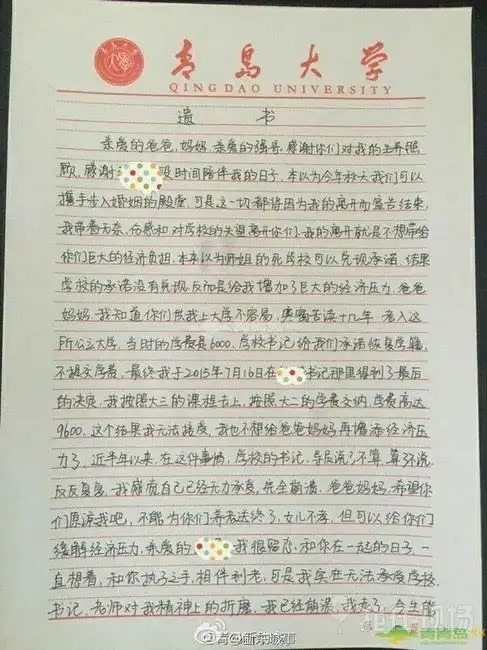 青岛大学
QINGDAO UNIVERSITY
遗 书
亲爱的爸爸,妈妈,亲爱的强哥,感谢你们对我的生养照
顾,感谢 段时间陪伴我的日子,本以为今年秋天我们可以
携手步入婚姻的殿堂,可是这一切都将因为我的离开而宣告结束,
我带着无奈、伤感和对学校的失望离开你们,我的离开就是不想带给
你们巨大的经济负担,本来以为师姐的死学校可以兑现承诺,结果
学校的承诺没有兑现反而是给我增加了巨大的经济压力,爸爸
妈妈,我知道你们供我上大学不容易,寒窗苦读十几年,考入这
所公立大学,当时的学费是6000,学校书记给我们承诺恢复学籍,
不想交学费,最终我于2015年7月16日在 书记那里得到了最后
的决定,我按照大三的课程去上,按照大二的学费交纳,学费高达
9600,这个结果我无法接受,我也不想给爸爸妈妈再增添经济压
力了,近半年以来,在这件事情,学校的书记,导员说了不算,算了不说,
反反复复,我感觉自己已经无力承受,完全崩溃,爸爸妈妈,希望你
们原谅我吧,不能为你们养老送终了,女儿不孝,但可以给你们
缓解经济压力,亲爱的 我很留恋,和你在一起的日子,一
直想着,和你执子之手,相伴到老,可是我实在无法承受学校,
书记,老师对我精神上的折磨,我已经崩溃,我走了,今生能
青青岛